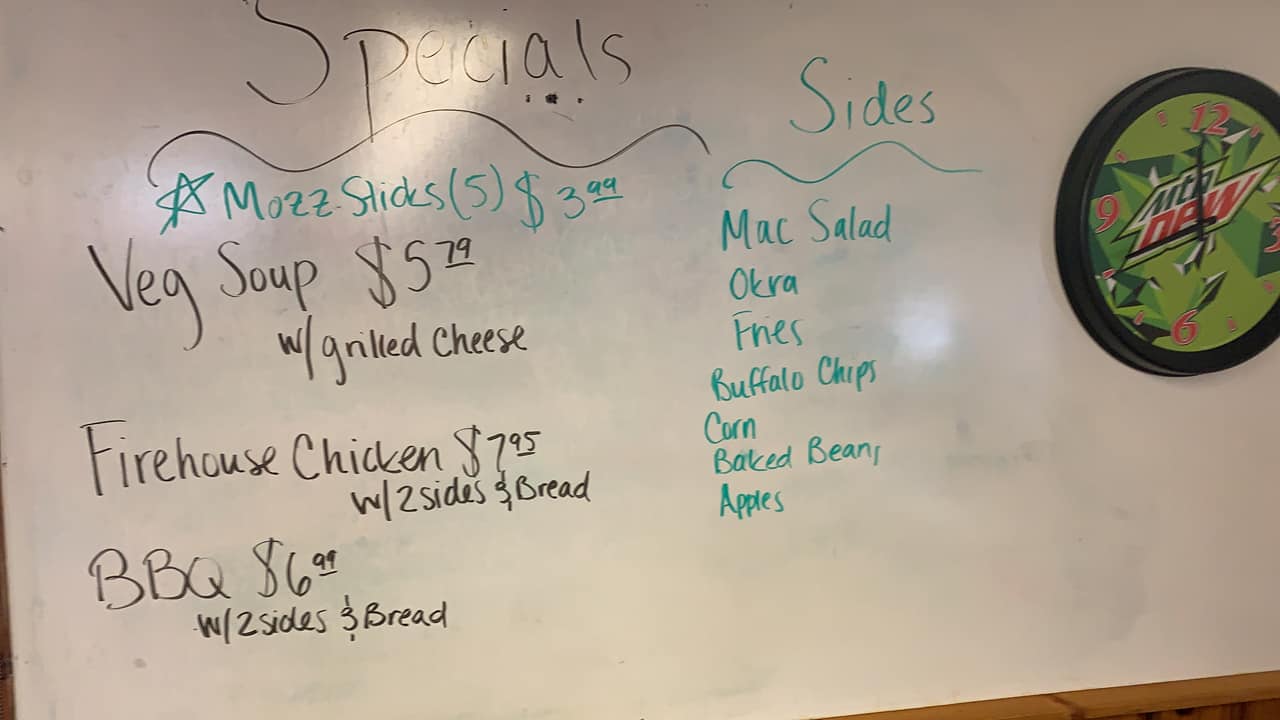 Specials
☆ Mozz Sticks (5) $3.99
Veg Soup $5.79
w/grilled cheese
Firehouse Chicken $7.95
w/2 sides & Bread
BBQ $6.99
w/2 sides & Bread
Sides
Mac Salad
Okra
Fries
Buffalo Chips
Corn
Baked Beans
Apples
12
9
3
6
Mtn
Dew